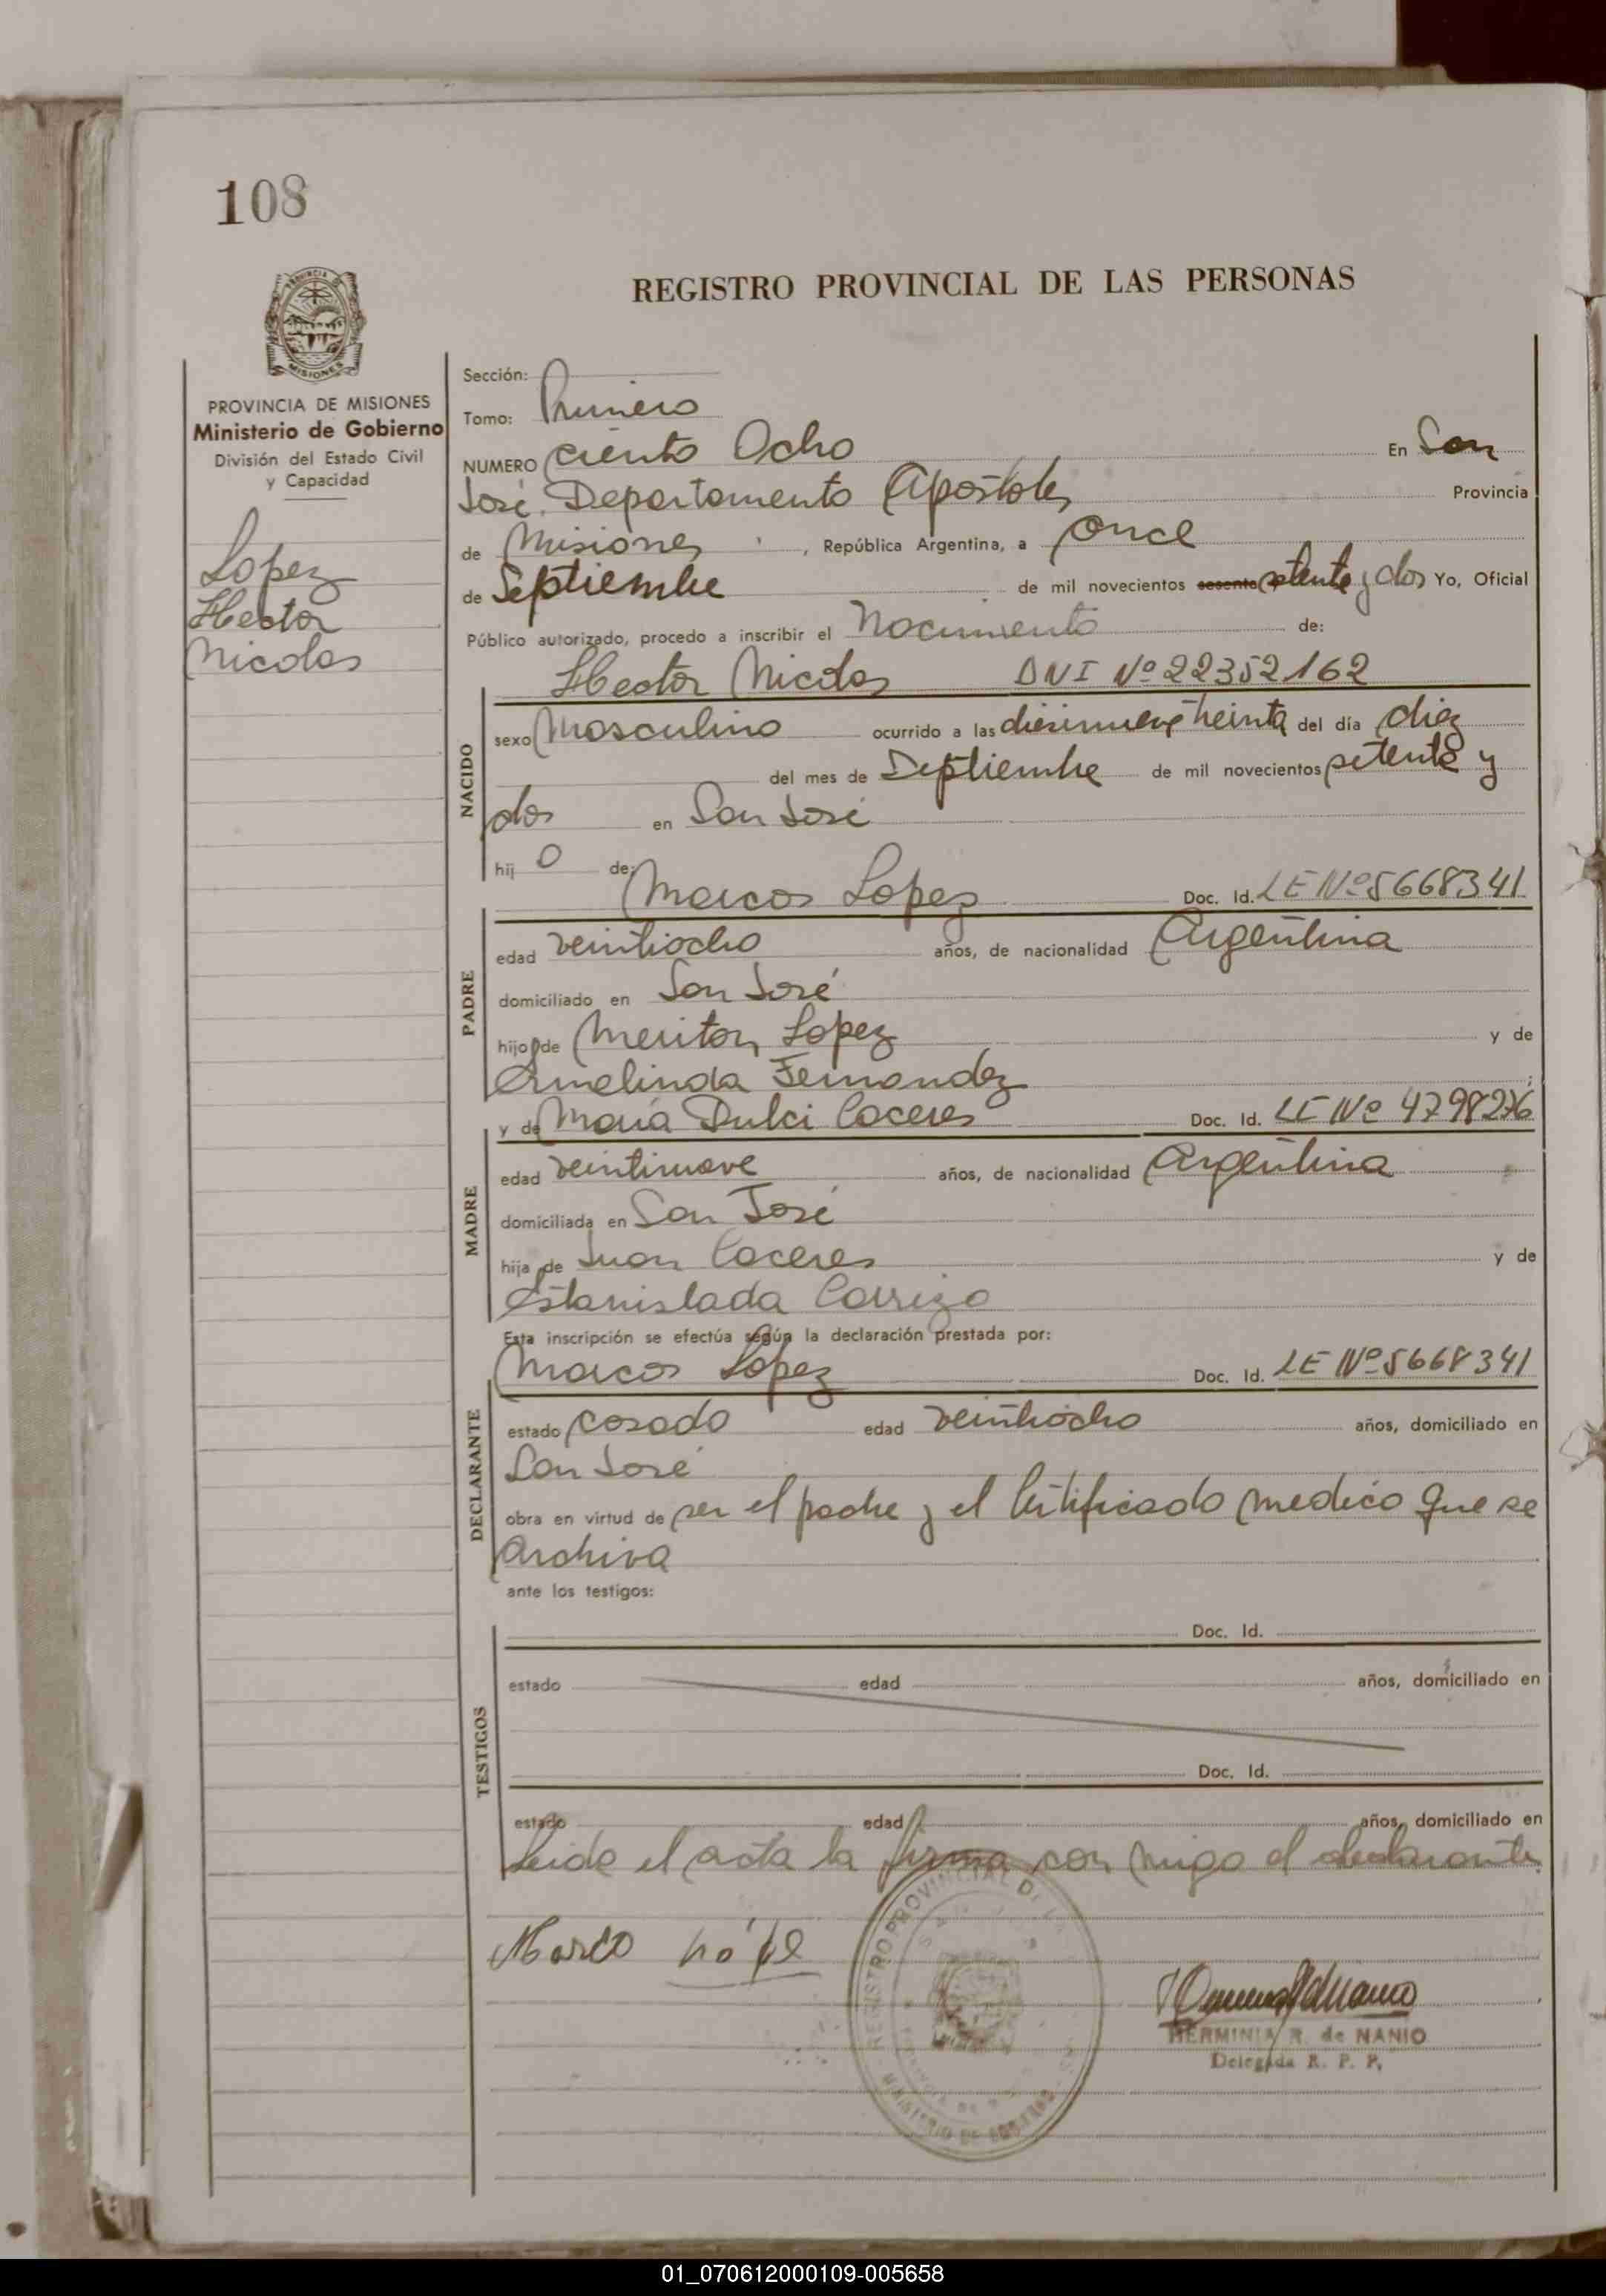 108
REGISTRO PROVINCIAL DE LAS PERSONAS
PROVINCIA DE MISIONES
Ministerio de Gobierno
División del Estado Civil
y Capacidad
Lopez
Hector
Nicolas
Sección:
Tomo: Primero
NUMERO Ciento Ocho En San
José. Departamento Apostoles Provincia
de Misiones, República Argentina, a Once
de Septiembre de mil novecientos sesenta setenta y dos Yo, Oficial
Público autorizado, procedo a inscribir el Nacimiento de:
Hector Nicolas DNI Nº 22352162
NACIDO
sexo Masculino ocurrido a las diecinueve treinta del día diez
del mes de Septiembre de mil novecientos setenta y
dos en San José
hij o de:
Marcos Lopez Doc. Id. LE Nº 5668341
PADRE
edad veintiocho años, de nacionalidad Argentina
domiciliado en San José
hijo de Meriton Lopez y de
Ermelinda Fernandez;
y de Maria Dulci Caceres Doc. Id. LE Nº 4798276
MADRE
edad veintinueve años, de nacionalidad Argentina
domiciliada en San José
hija de Juan Caceres y de
Estanislada Carrizo
Esta inscripción se efectúa según la declaración prestada por:
Marcos Lopez Doc. Id. LE Nº 5668341
DECLARANTE
estado Casado edad veintiocho años, domiciliado en
San José
obra en virtud de ser el padre y el Certificado medico que se
archiva
ante los testigos:
Doc. Id.
TESTIGOS
estado edad años, domiciliado en
Doc. Id.
estado edad años, domiciliado en
Leida el acta la firma con migo el declarante.
Marco López
REGISTRO PROVINCIAL DE LAS
MINISTERIO DE GOBIERNO
HERMINIA R. de NANIO
Delegada R. P. P.
01_070612000109-005658